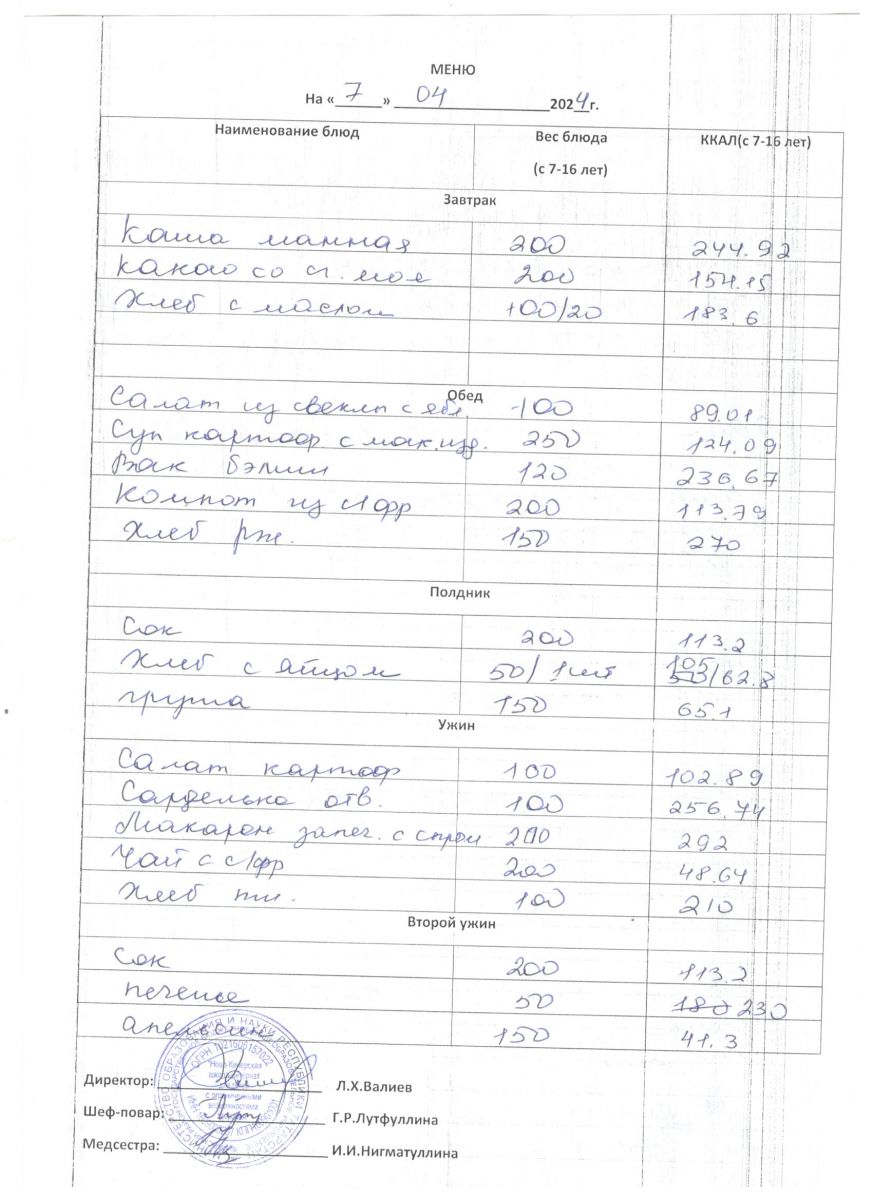 МЕНЮ
На «7» 04 2024г.
Наименование блюд Вес блюда (с 7-16 лет) ККАЛ(с 7-16 лет)
Завтрак
Каша манная 200 244.92
Какао со сг. мол 200 154.15
Хлеб с маслом 100/20 183.6
Обед
Салат из свеклы с ябл. 100 89.01
Суп картоф. с мак.изд. 250 124.09
Вак бэлиш 120 236,67
Компот из с/фр 200 113.79
Хлеб рж. 150 270
Полдник
Сок 200 113.2
Хлеб с яйцом 50/1шт 105/62.8
груша 150 65.1
Ужин
Салат картоф 100 102.89
Сарделька отв. 100 256,74
Макарон запег. с сыром 200 292
Чай с с/фр 200 48.64
Хлеб пш. 100 210
Второй ужин
Сок 200 113.2
печенье 50 180 230
апельсин 150 41.3
Директор: Л.Х.Валиев
Шеф-повар: Г.Р.Лутфуллина
Медсестра: И.И.Нигматуллина